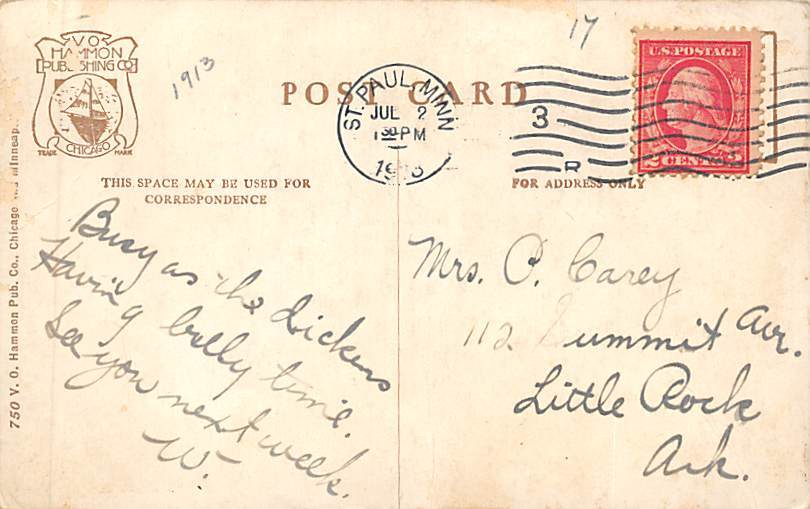 V.O.
HAMMON
PUBLISHING CO
CHICAGO
TRADE MARK
1913
17
POST CARD
ST. PAUL, MINN
JUL 2
1 30 PM
1913
3
R
U.S. POSTAGE
2 CENTS 2
THIS SPACE MAY BE USED FOR
CORRESPONDENCE
FOR ADDRESS ONLY
Busy as the dickens
Having bully time.
See you next week.
W.
Mrs. P. Carey
112 Summit Avr.
Little Rock
Ark.
750 V. O. Hammon Pub. Co., Chicago and Minneap.